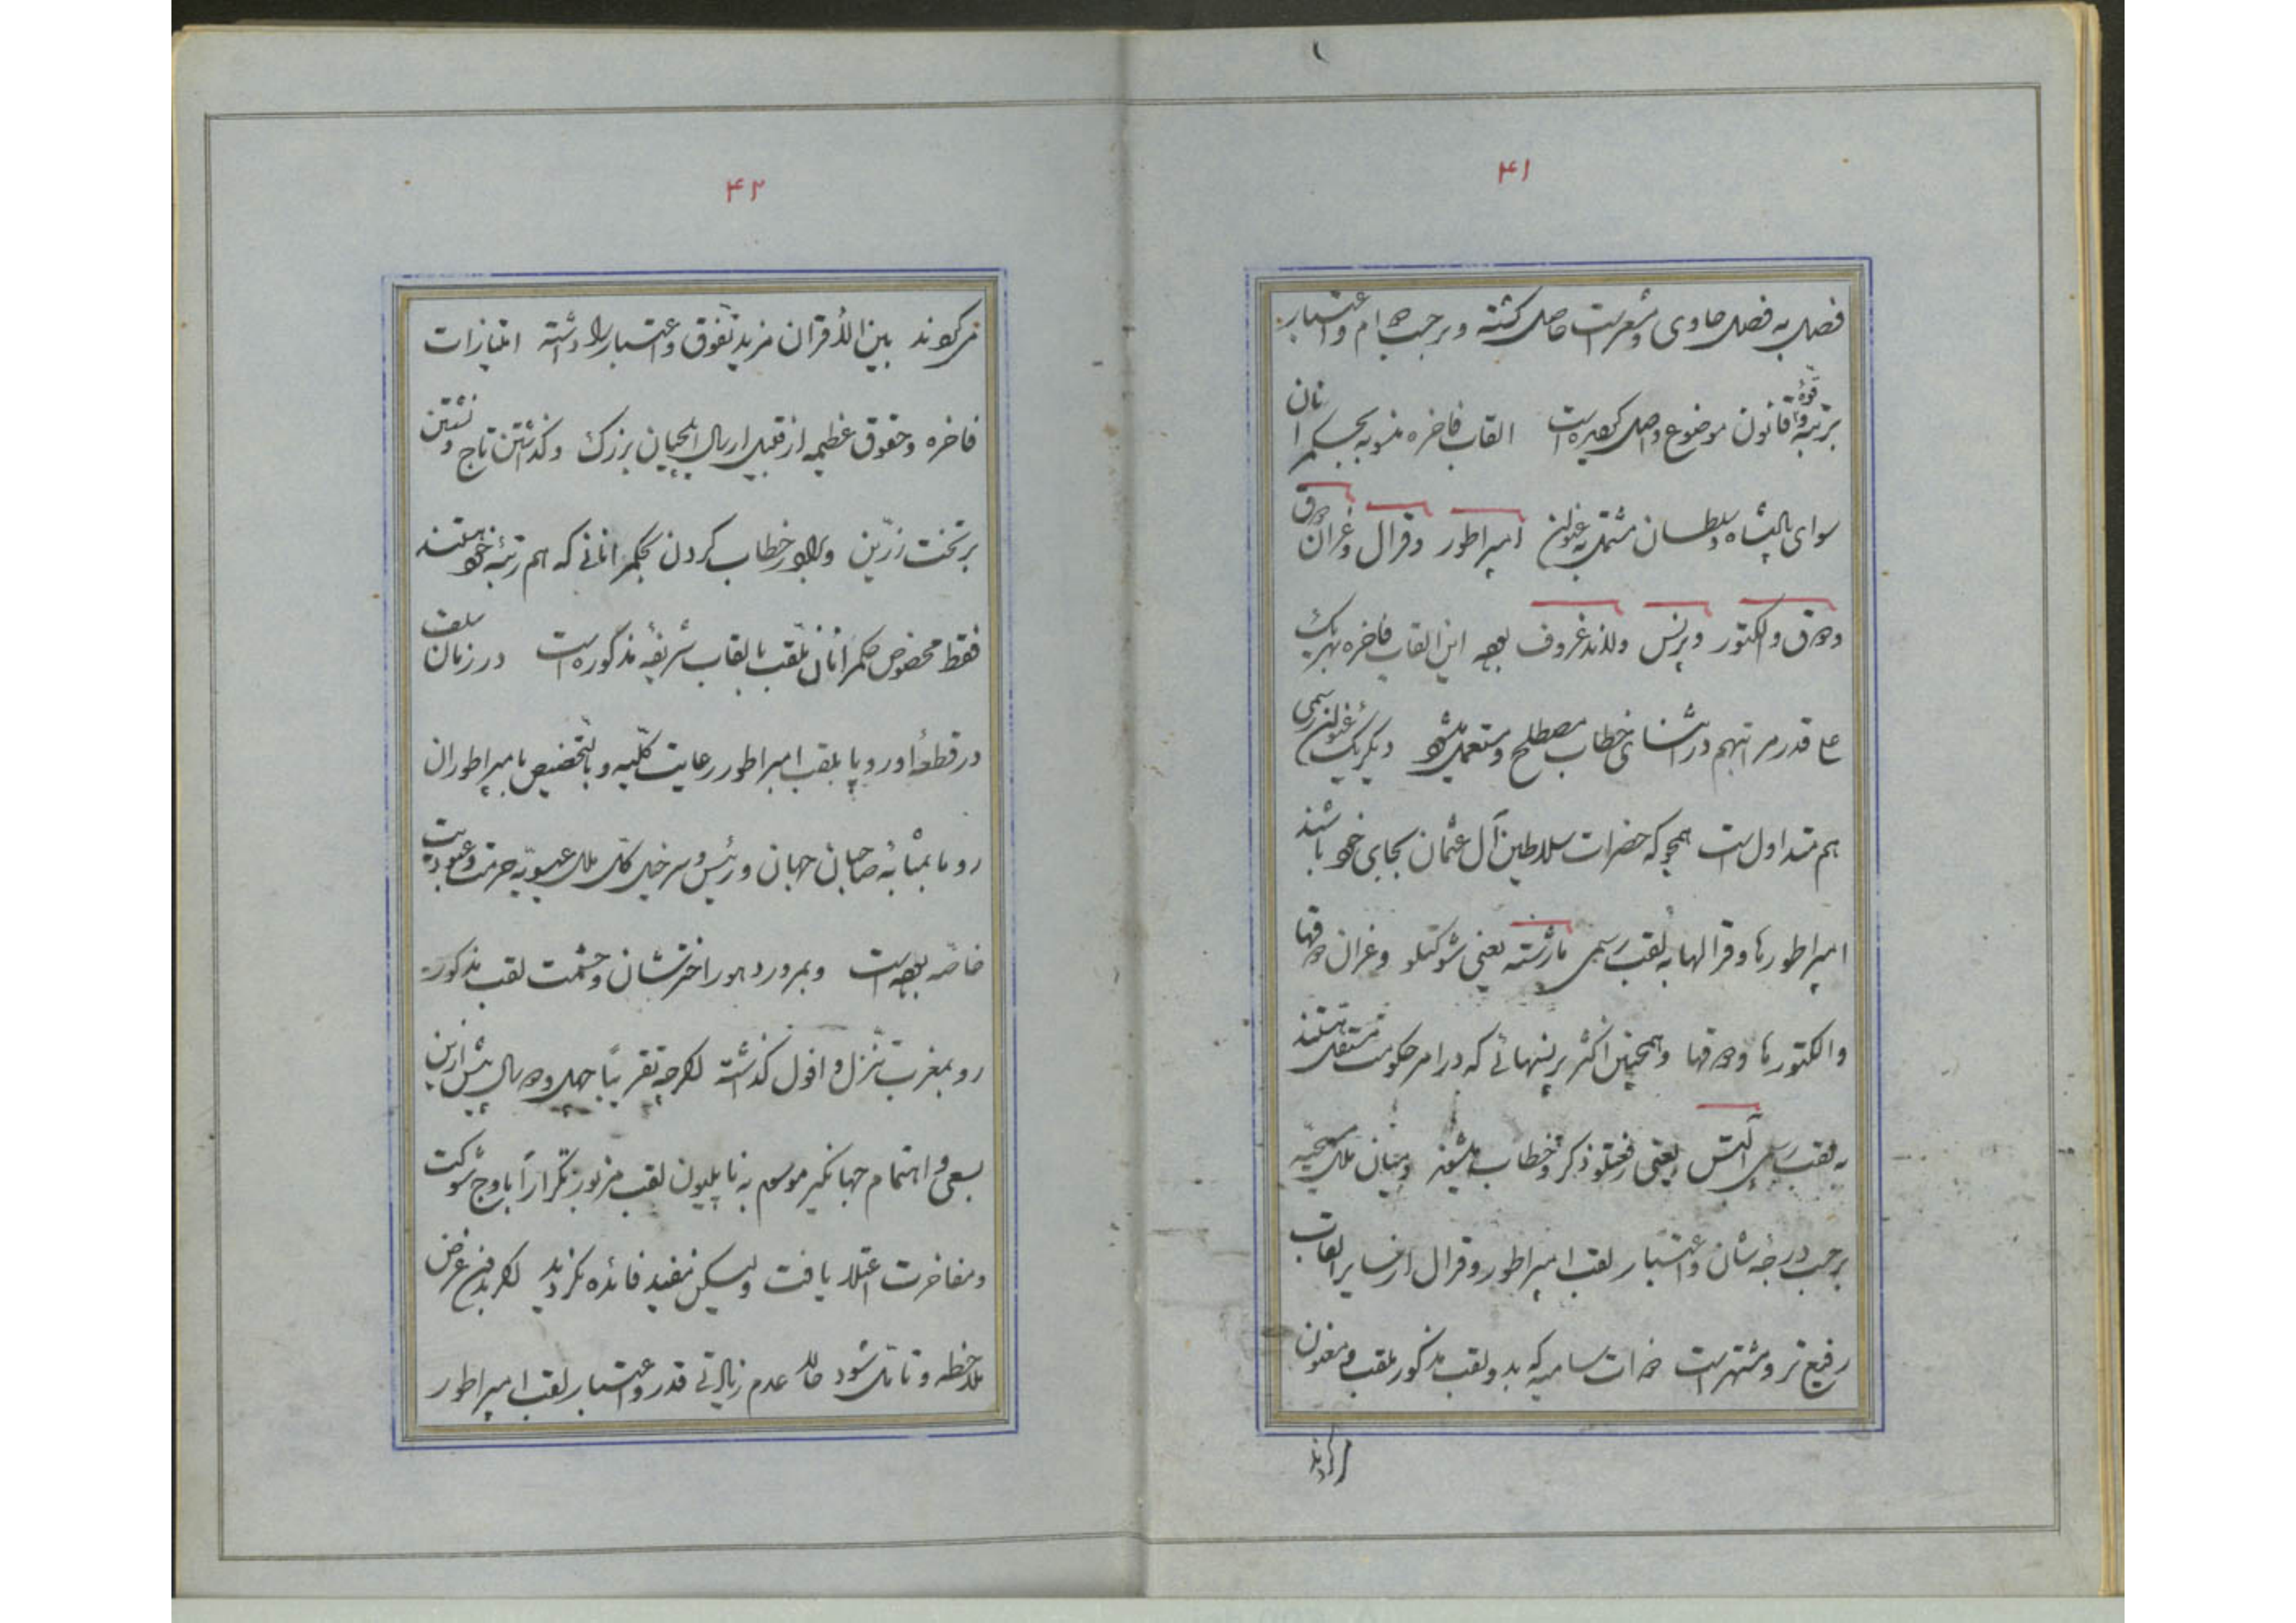 ۴۱
فصل به فصل حاوی و شعر است حاصل کشته و برحسب احترام و اعتبار
برتبهٔ قوّه و قانون موضوع واصل کردیده است القاب فاخره منسوبه بحکمرانان
سوای پادشاه و سلطان مشتمل به عنوان امپراطور و قرال و غران دوق
و دوق و الکتور و پرنس و لاندغروف بوده این القاب فاخره بهر یک
علی قدر مراتبهم در اثنای خطاب مصطلح و مستعمل میشود و یکریک عنوان رسمی
هم متداول است همچو که حضرات سلاطین آل عثمان بجای خود باشند
امپراطورها و قرالها به لقب رسمی ماژسته یعنی شوکتلو و غران دوقها
و الکتورها و دوقها و همچنین اکثر پرنسهائی که در امر حکومت مستقل هستند
به لقب رسمی آلتس یعنی فخملو ذکر و خطاب میشوند و میان ملل مسیحیه
برحسب درجهٔ شأن و اعتبار لقب امپراطور و قرال از سایر القاب
رفیع تر و مشتهر است ذوات سامیه که بدو لقب مذکور ملقب و معنون
میکردند
۴۲
میکردند بین الأقران مزید تفوق و اعتبار را داشته امتیازات
فاخره و حقوق عظیمه از قبیل ارسال ایلچیان بزرک و کذاشتن تاج و نشستن
بر تخت زرّین و برادر خطاب کردن بحکمرانانی که هم رتبهٔ خود هستند
فقط مخصوص حکمرانان ملقب بالقاب شریفهٔ مذکوره است در زمان سلف
در قطعهٔ اوروپا بلقب امپراطور رعایت کلّیه و بالتخصیص بامپراطوران
روما بمثابهٔ صاحبان جهان و رئیس و سرخیل کلّ ملل عیسویه حرمت و عبودیت
خاصّه بوده است و بمرور دهور اختر شان و حشمت لقب مذکور
رو بمغرب تنزل و افول کذشته اکرچه تقریباً چهل و دو سال پیش ازین
بسعی و اهتمام جهانکیر موسوم به ناپلیون لقب مزبور تکراراً باوج شوکت
و مفاخرت اعتلا یافت ولیکن مفید فائده نکردید اکر بدون غرض
ملاحظه و تأمّل شود حالا عدم زیادتی قدر و اعتبار لقب امپراطور